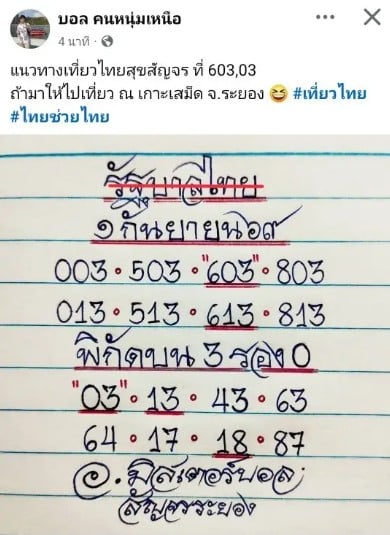 บอล คนหนุ่มเหนือ
4 นาที ·
แนวทางเที่ยวไทยสุขสัญจร ที่ 603,03
ถ้ามาให้ไปเที่ยว ณ เกาะเสม็ด จ.ระยอง 😆 #เที่ยวไทย
#ไทยช่วยไทย
รัฐบาลไทย
๑ กันยายน ๖๙
003 • 503 • "603" • 803
013 • 513 • 613 • 813
พิกัดบน 3 รอง 0
"03" • 13 • 43 • 63
64 • 17 • 18 • 87
อ. มิสเตอร์บอล
สัญจรระยอง